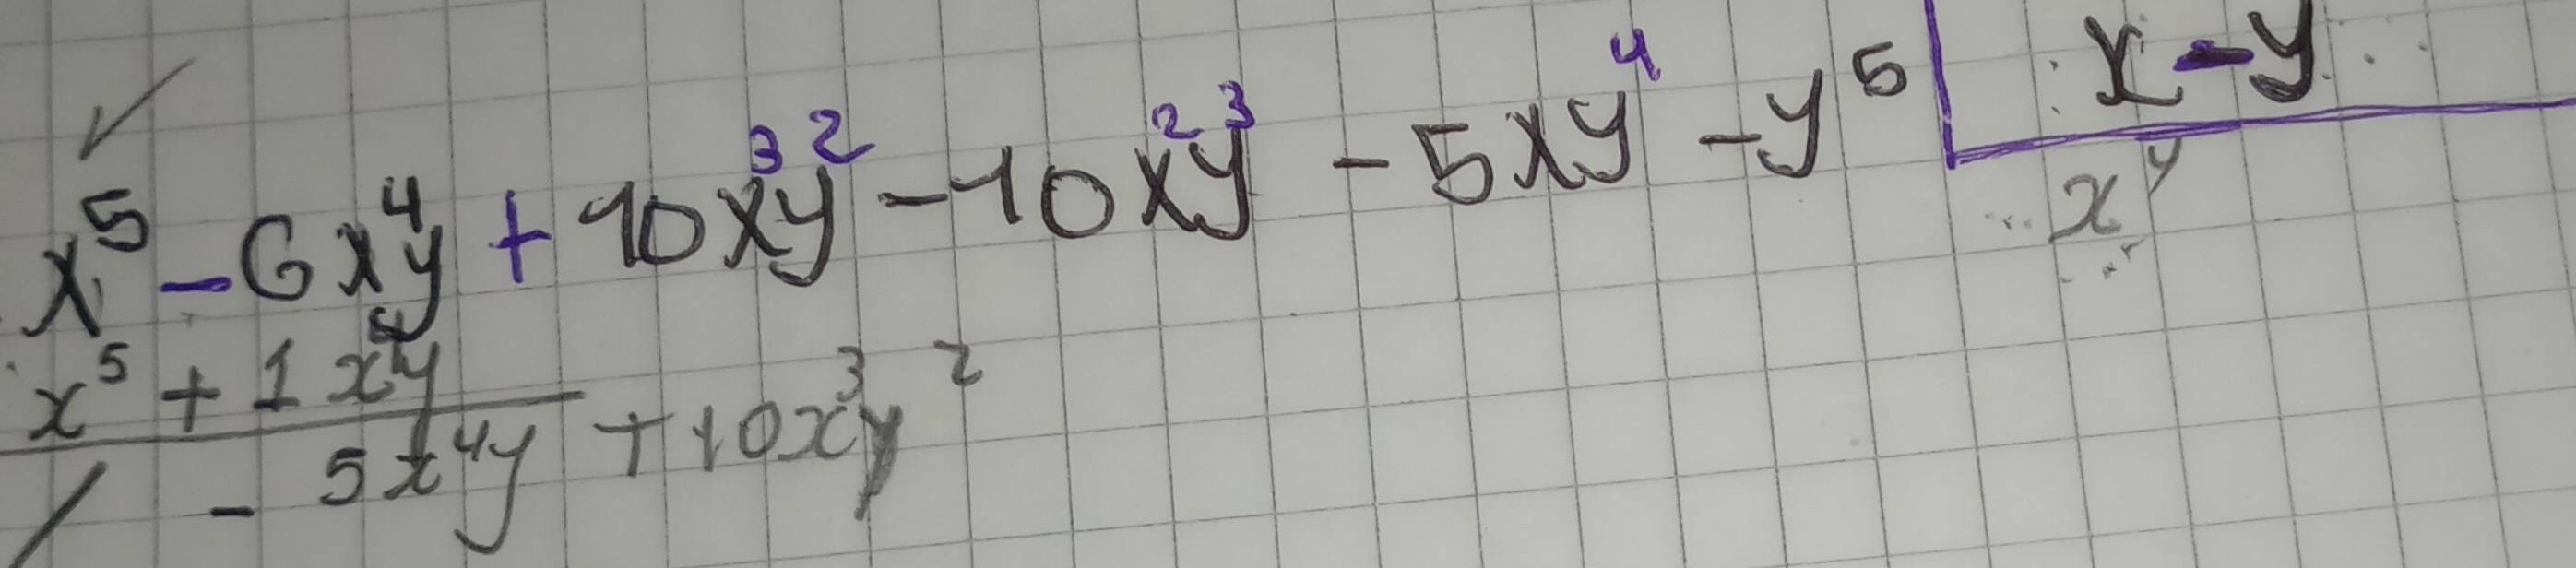 x⁵ - 6x⁴y + 10x³y² - 10x²y³ - 5xy⁴ - y⁵ | x - y
x⁵ + 1x⁴y x⁴
- 5x⁴y + 10x³y²